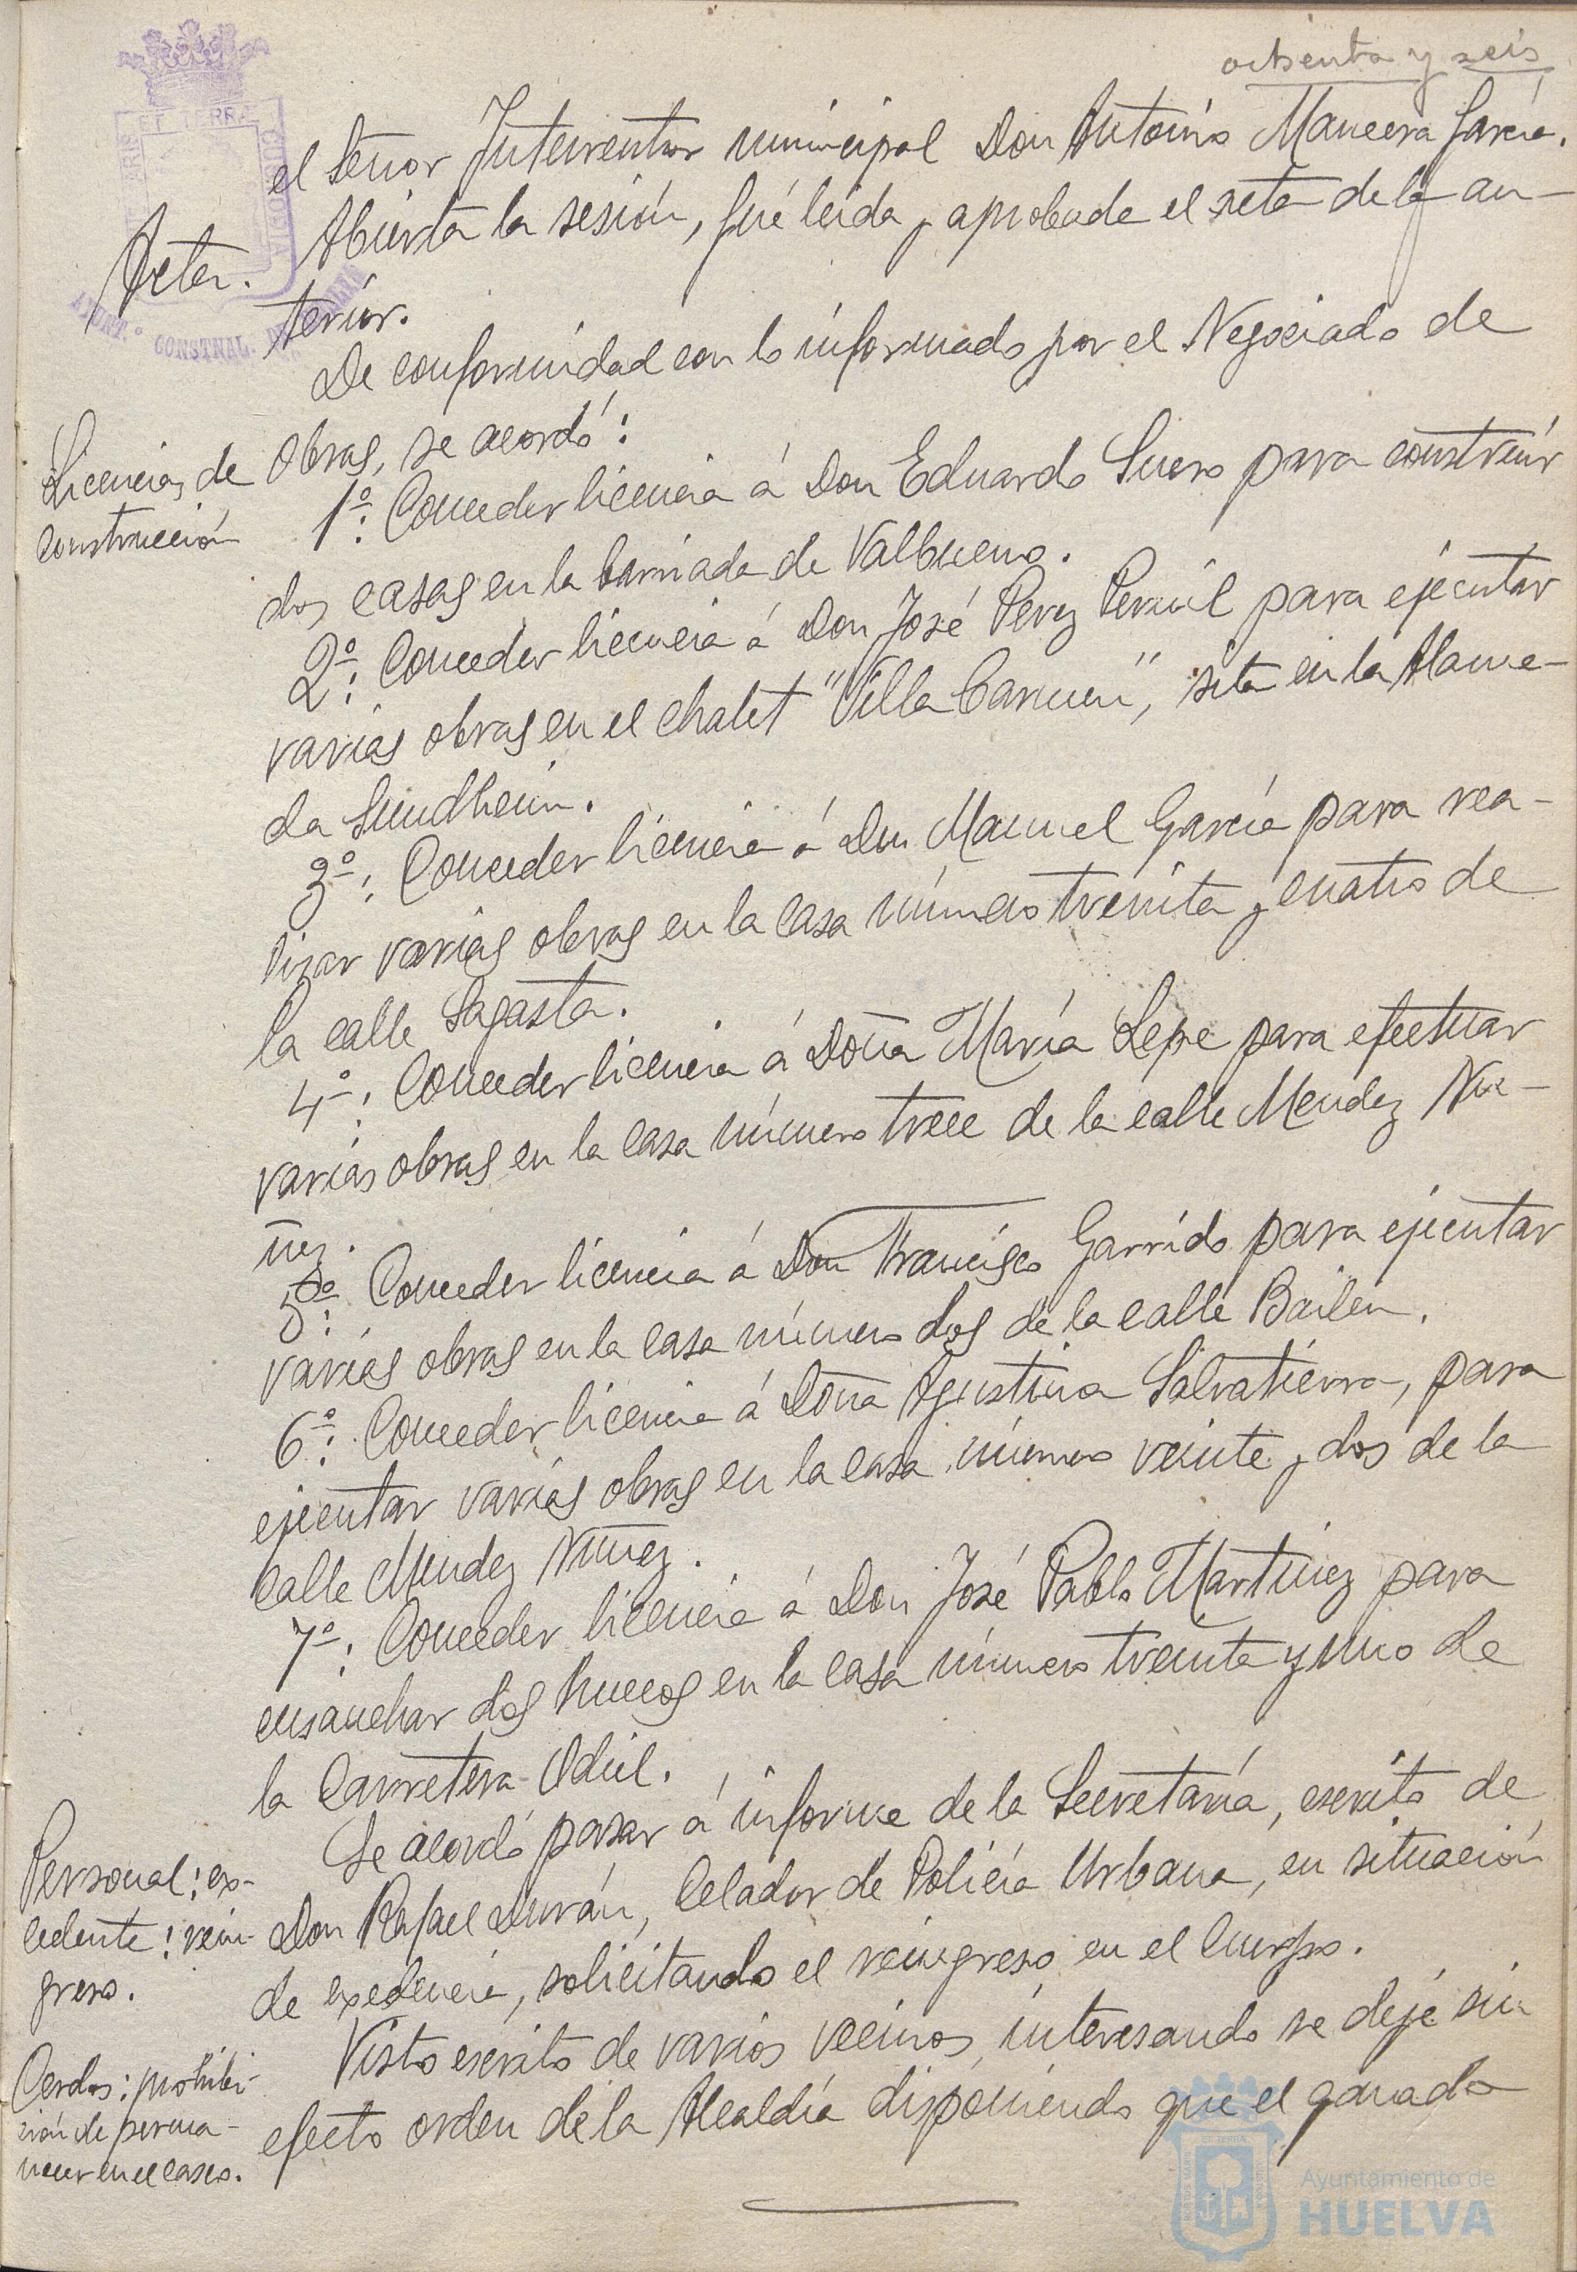 ochenta y seis
el Señor Interventor municipal Don Antonio Mancera García.
Acta. Abierta la sesión, fué leida y aprobada el acta de la an-
terior.
De conformidad con lo informado por el Negociado de
Licencias de Obras, se acordó:
construcción 1º: Conceder licencia á Don Eduardo Suero para construir
dos casas en la barriada de Valbueno.
2º: Conceder licencia á Don José Perez Pernil para ejecutar
varias obras en el chalet "Villa Carmen", sita en la Alame-
da Sundheim.
3º: Conceder licencia á Don Manuel García para rea-
lizar varias obras en la casa número treinta y cuatro de
la calle Sagasta.
4º: Conceder licencia á Doña María Lepe para efectuar
varias obras en la casa número trece de la calle Mendez Nu-
ñez.
5º: Conceder licencia á Don Francisco Garrido para ejecutar
varias obras en la casa número dos de la calle Bailen.
6º: Conceder licencia á Doña Agustina Salvatierra, para
ejecutar varias obras en la casa número veinte y dos de la
calle Mendez Nuñez.
7º: Conceder licencia á Don José Pablo Martinez para
ensanchar dos huecos en la casa número treinta y uno de
la Carretera Odiel.
Se acordó pasar á informe de la Secretaría, escrito de
Personal: ex-
cedente: rein-
greso.
Don Rafael Durán, Celador de Policía Urbana, en situación
de exedencia, solicitando el reingreso en el Cuerpo.
Visto escrito de varios vecinos, interesando se deje sin
Cerdos: prohibi-
ción de perma-
necer en el casco.
efecto orden de la Alcaldía disponiendo que el ganado
AYUNT.º CONSTNAL. DE
Ayuntamiento de
HUELVA